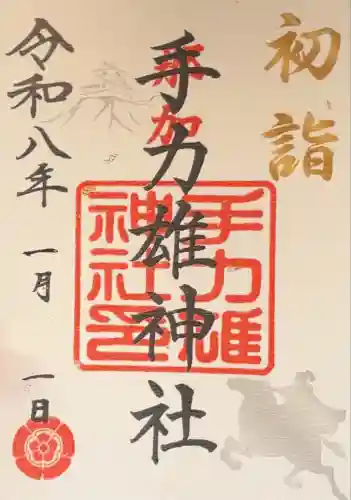 初詣
那加
手力雄神社
手力雄
神社印
令和八年
一月
一日